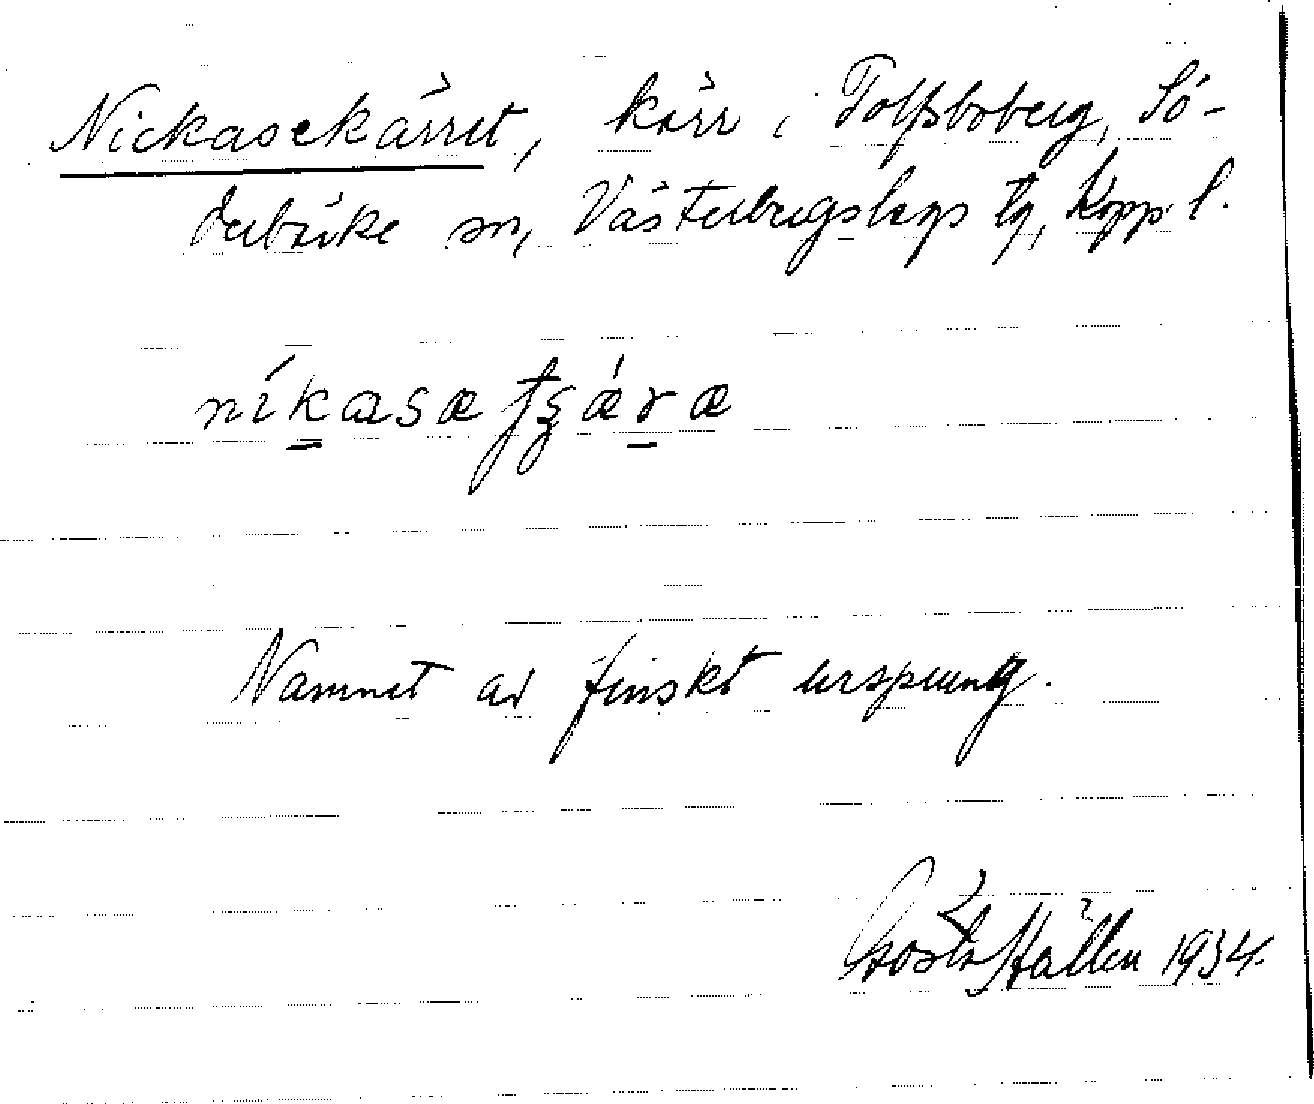 Nickasekärret, kärr i Tolfsboberg, Sö-
derbärke sn, Västerbergslags tg, Kopp. l.
níkasa tʂǽra
Namnet av finskt ursprung.
Gösta Hällen 1934.